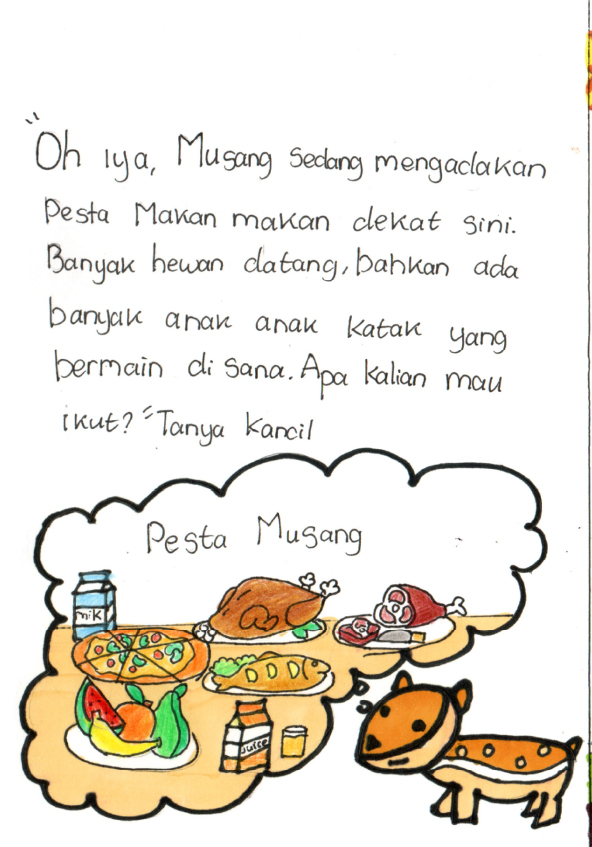 "Oh iya, Musang sedang mengadakan
Pesta Makan makan dekat sini.
Banyak hewan datang, bahkan ada
banyak anak anak katak yang
bermain di sana. Apa kalian mau
ikut?" Tanya kancil
Pesta Musang
milk
Juice